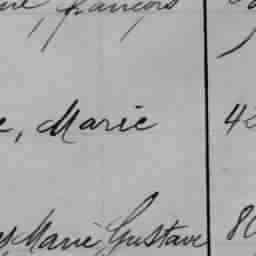 françois
, Marie 42
Marie Gustave 80